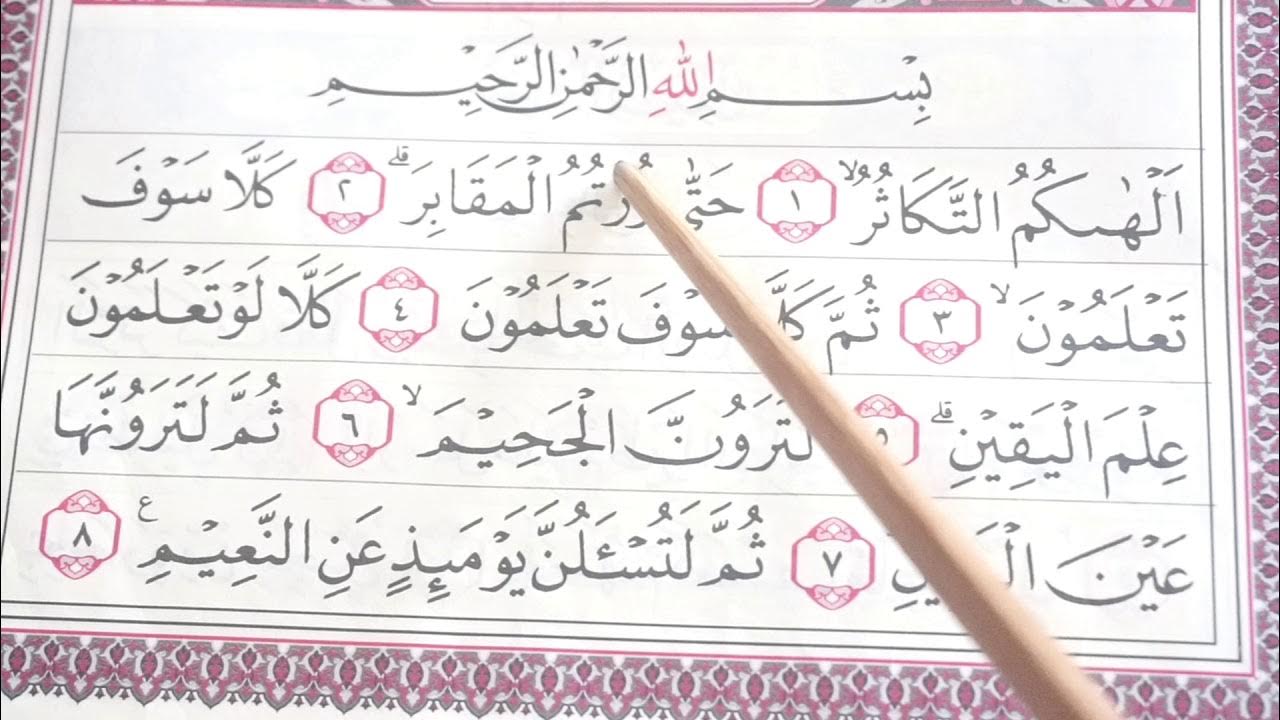 بِسْمِ اللهِ الرَّحْمٰنِ الرَّحِيْمِ
اَلْهٰىكُمُ التَّكَاثُرُۙ ١ حَتّٰى زُرْتُمُ الْمَقَابِرَۗ ٢ كَلَّا سَوْفَ
تَعْلَمُوْنَۙ ٣ ثُمَّ كَلَّا سَوْفَ تَعْلَمُوْنَ ٤ كَلَّا لَوْ تَعْلَمُوْنَ
عِلْمَ الْيَقِيْنِۗ ٥ لَتَرَوُنَّ الْجَحِيْمَۙ ٦ ثُمَّ لَتَرَوُنَّهَا
عَيْنَ ٧ ثُمَّ لَتُسْـَٔلُنَّ يَوْمَىِٕذٍ عَنِ النَّعِيْمِ ࣖ ٨